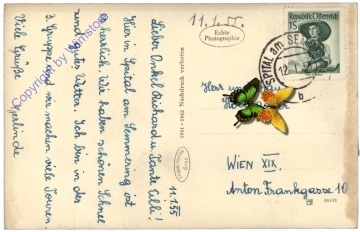 11.1.55.
11.1.55
Lieber Onkel Richard u Tante Lilli!
Hier in Spital am Semmering ist
es herrlich. Wir haben schönen Schnee
und gutes Wetter. Ich bin in der
3. Gruppe und wir machen viele Touren.
Viele Grüße
Gerlinde
Echte
Photographie
1941-1942 Nachdruck verboten
Republik Österreich
1S
SPITAL am SE
12
b
WIEN XIX.
Anton Frankgasse 10
Copyright by